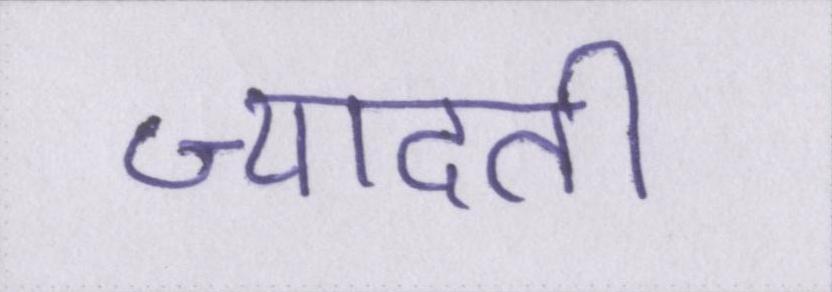 ज्यादती